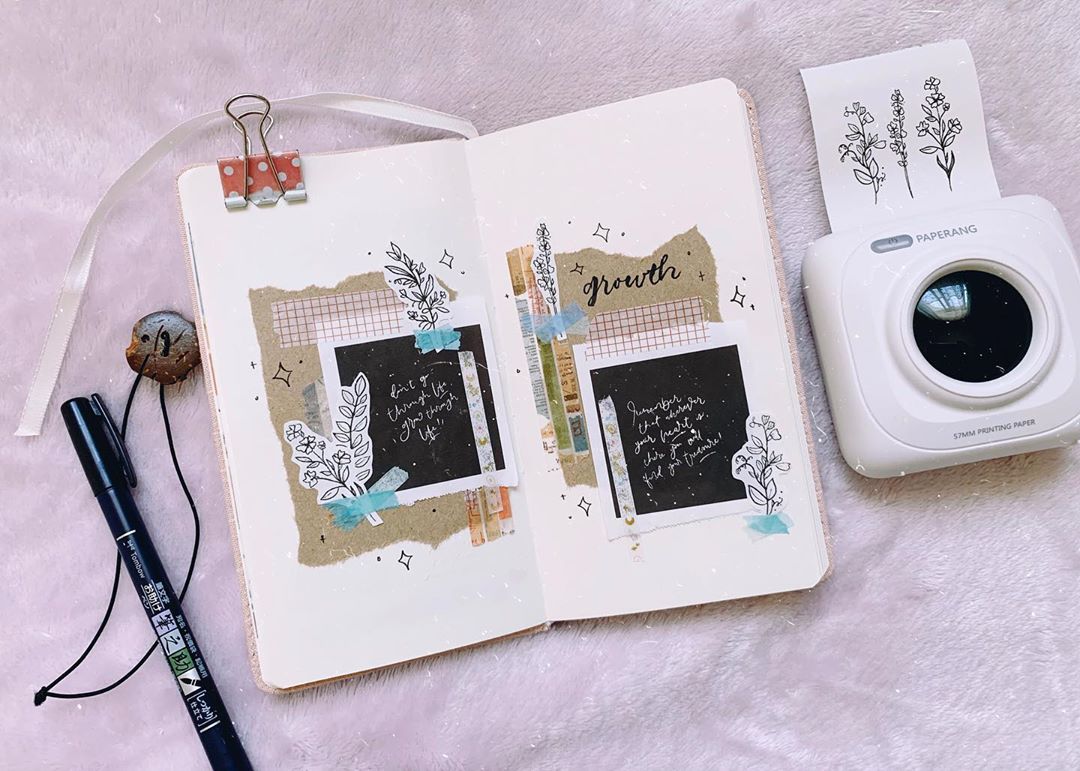 don't go
through life
grow through
life!!
growth
Remember
that wherever
your heart is
there you will
find your treasure!
PAPERANG
57MM PRINTING PAPER
Tombow
筆文字
お助け
筆之助
しっかり
仕立て